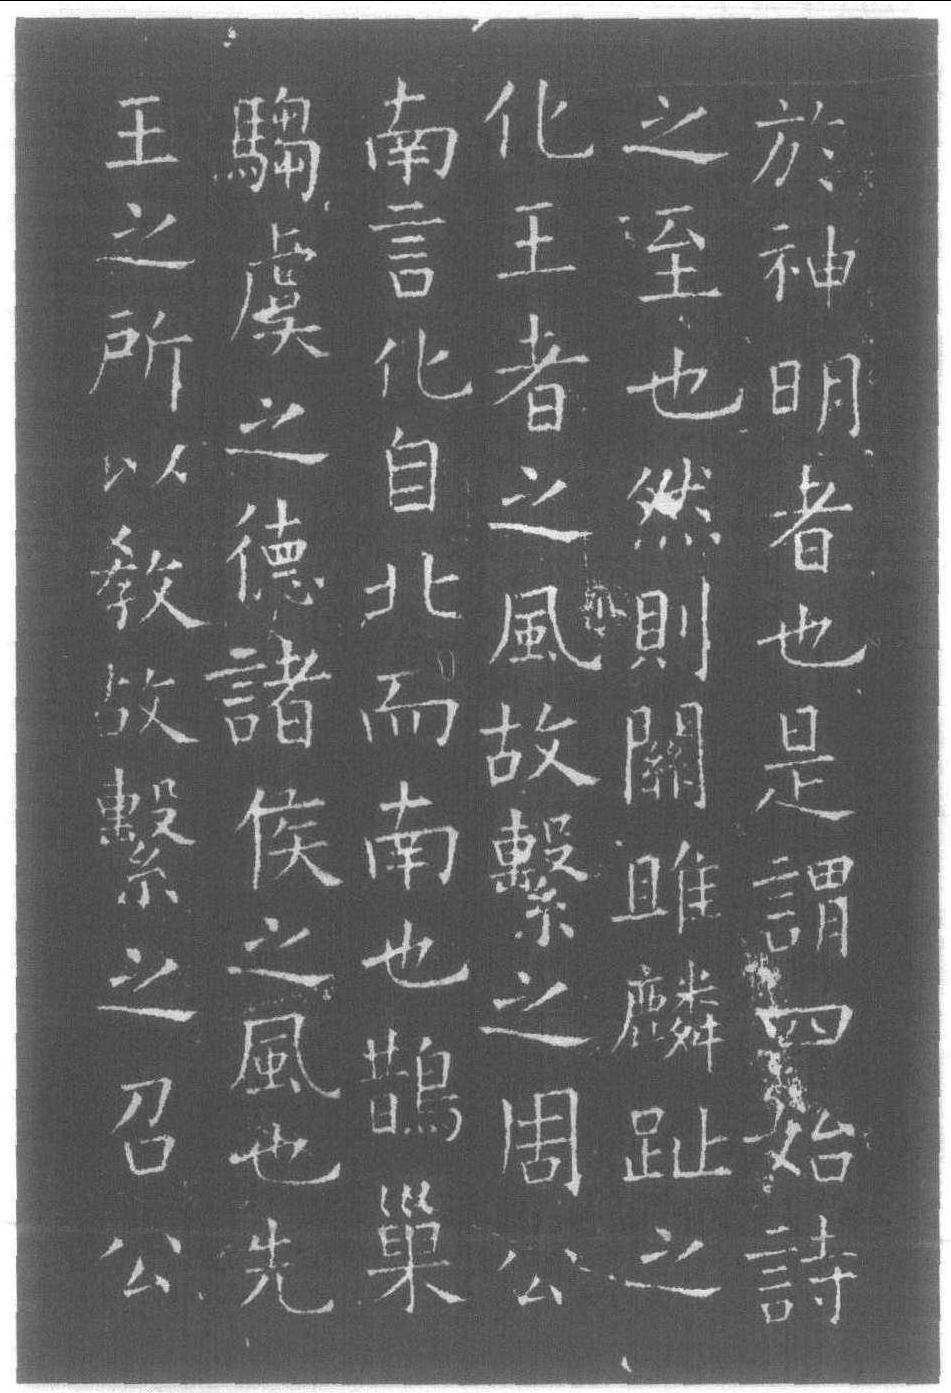 於神明者也是謂四始詩
之至也然則關雎麟趾之
化王者之風故繫之周公
南言化自北而南也鵲巢
騶虞之德諸侯之風也先
王之所以教故繫之召公